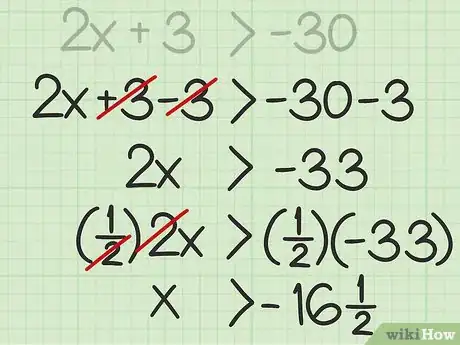 2x + 3 > -30
2x + 3 - 3 > -30 - 3
2x > -33
(1/2) 2x > (1/2)(-33)
x > -16 1/2
wikiHow